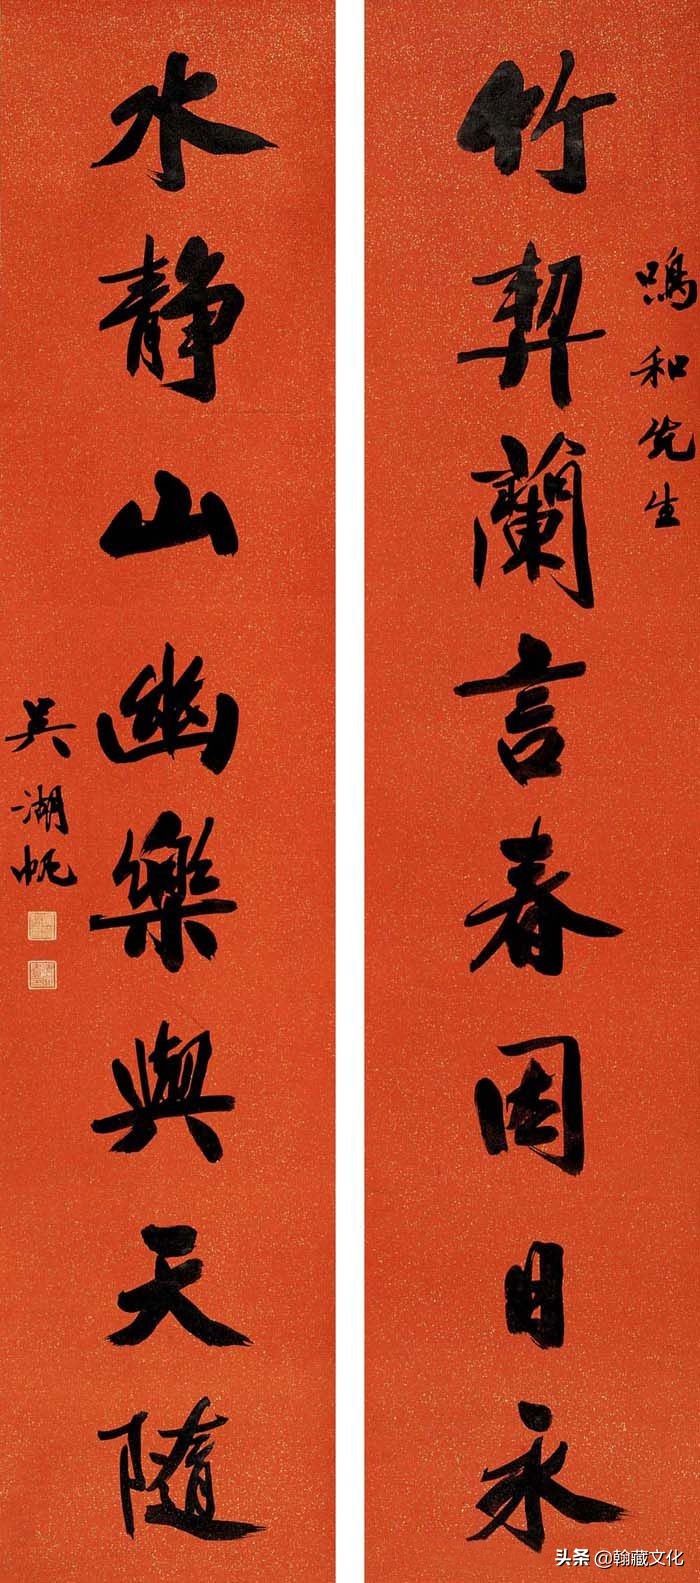 鳴和先生
竹契蘭言春因日永
水静山幽樂與天隨
吴湖帆
头条 @翰藏文化